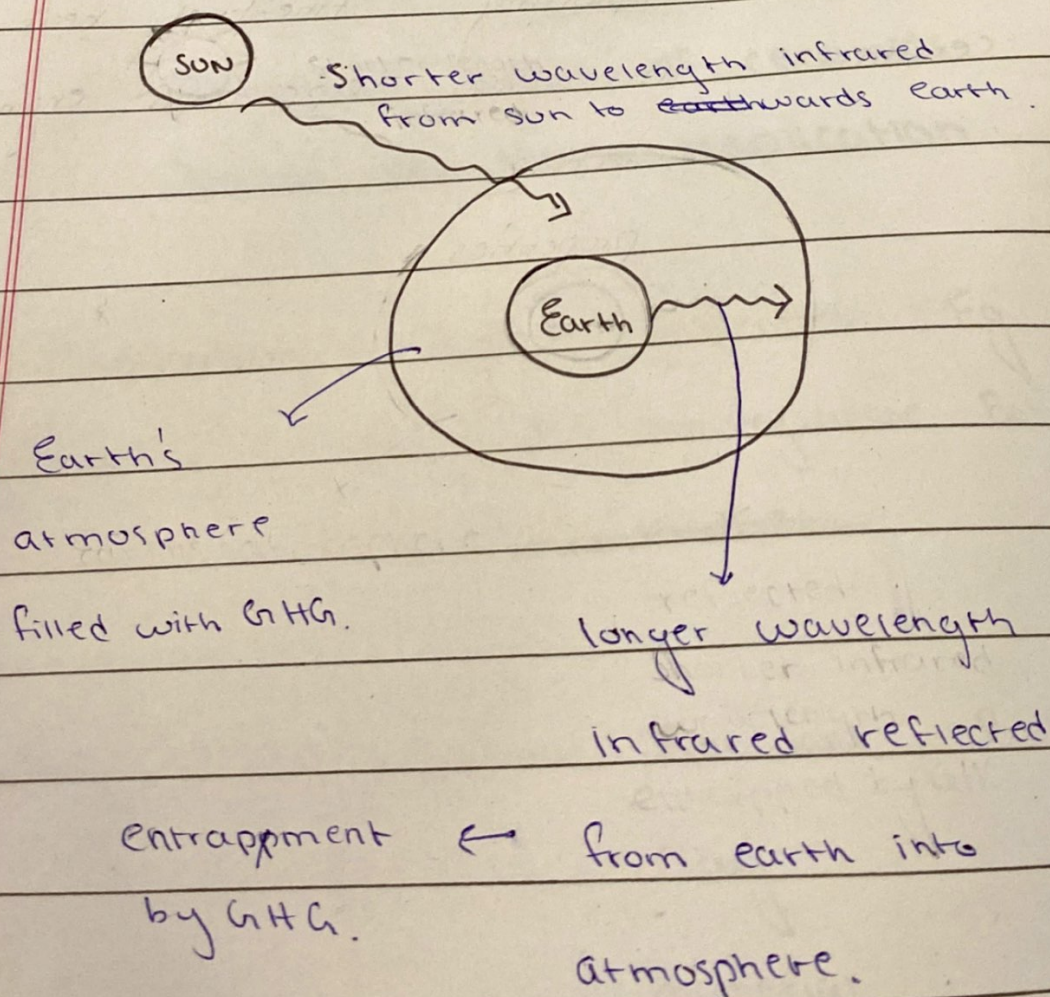 SUN
Shorter wavelength infrared
from sun to earthwards earth.
Earth
Earth's
atmosphere
filled with GHG.
longer wavelength
infrared reflected
from earth into
atmosphere.
entrappment
by GHG.